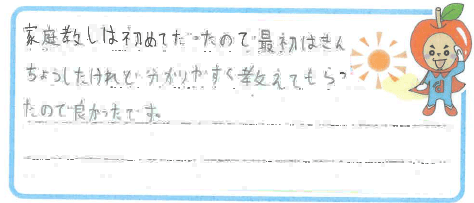 家庭教しは初めてだったので最初はきん
ちょうしたけれど分かりやすく教えてもらっ
たので良かったです。